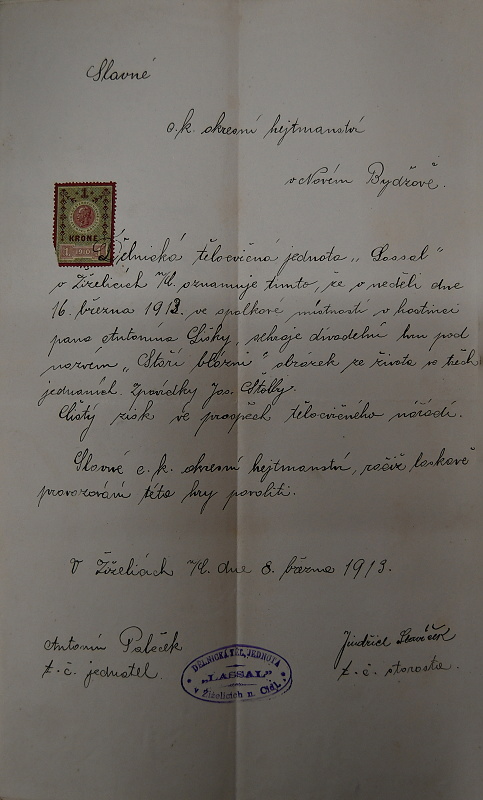 Slavné
c.k. okresní hejtmanství
v Novém Bydžově.
1
KRONE
1 1910
Dělnická tělocvičná jednota „Lassal"
v Žiželicích n/C. oznamuje tímto, že v neděli dne
16. března 1913. ve spolkové místnosti v hostinci
pana Antonína Lišky, sehraje divadelní hru pod
názvem „Staří blázni" obrázek ze života ve třech
jednáních. Zpovídky Jos. Štolby.
Čistý zisk ve prospěch tělocvičného nářadí.
Slavné c.k. okresní hejtmanství, račiž laskavě
provozování této hry povoliti.
V Žiželicích n/C. dne 8. března 1913.
Antonín Paleček
t.č. jednatel.
Jindřich Slavíček
t.č. starosta.
DĚLNICKÁ TĚL. JEDNOTA
„LASSAL"
v Žiželicích n. Cidl.